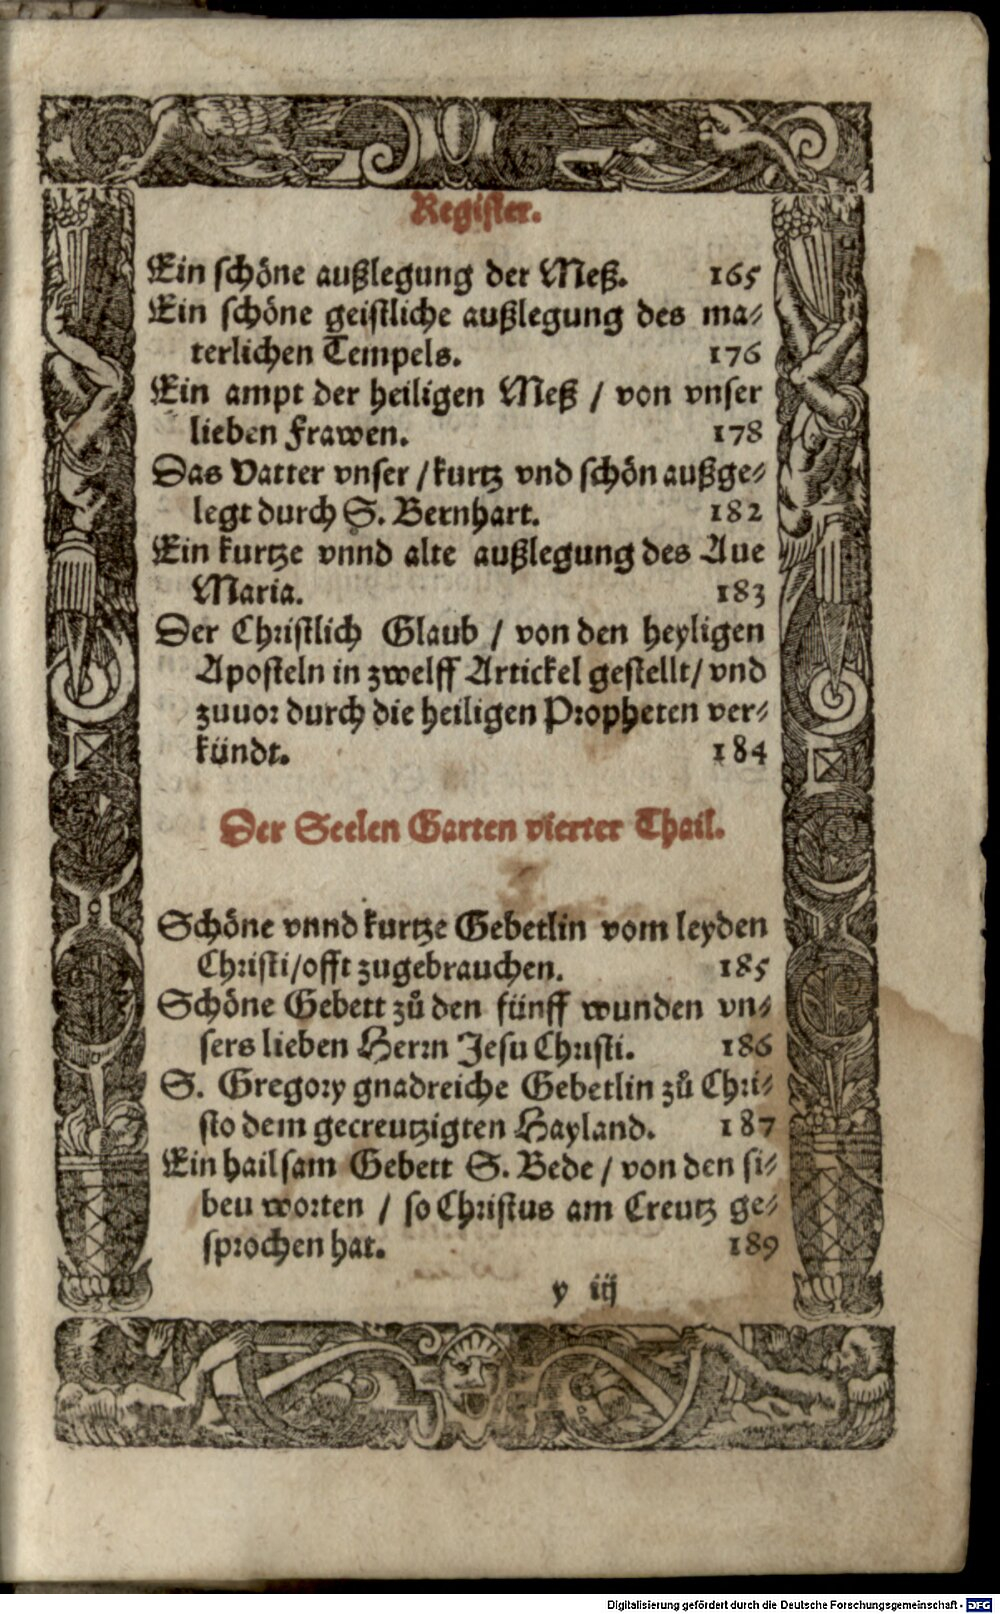 Register.
Ein schöne außlegung der Meß. 165
Ein schöne geistliche außlegung des ma-
terlichen Tempels. 176
Ein ampt der heiligen Meß / von vnser
lieben Frawen. 178
Das Vatter vnser / kurtz vnd schön außge-
legt durch S. Bernhart. 182
Ein kurtze vnnd alte außlegung des Aue
Maria. 183
Der Christlich Glaub / von den heyligen
Aposteln in zwelff Artickel gestellt / vnd
zuuor durch die heiligen Propheten ver-
kündt. 184
Der Seelen Garten vierter Thail.
Schöne vnnd kurtze Gebetlin vom leyden
Christi / offt zugebrauchen. 185
Schöne Gebett zů den fünff wunden vn-
sers lieben Herrn Jesu Christi. 186
S. Gregory gnadreiche Gebetlin zů Chri-
sto dem gecreutzigten Hayland. 187
Ein hailsam Gebett S. Bede / von den si-
beu worten / so Christus am Creutz ge-
sprochen hat. 189
v iij
Digitalisierung gefördert durch die Deutsche Forschungsgemeinschaft - DFG